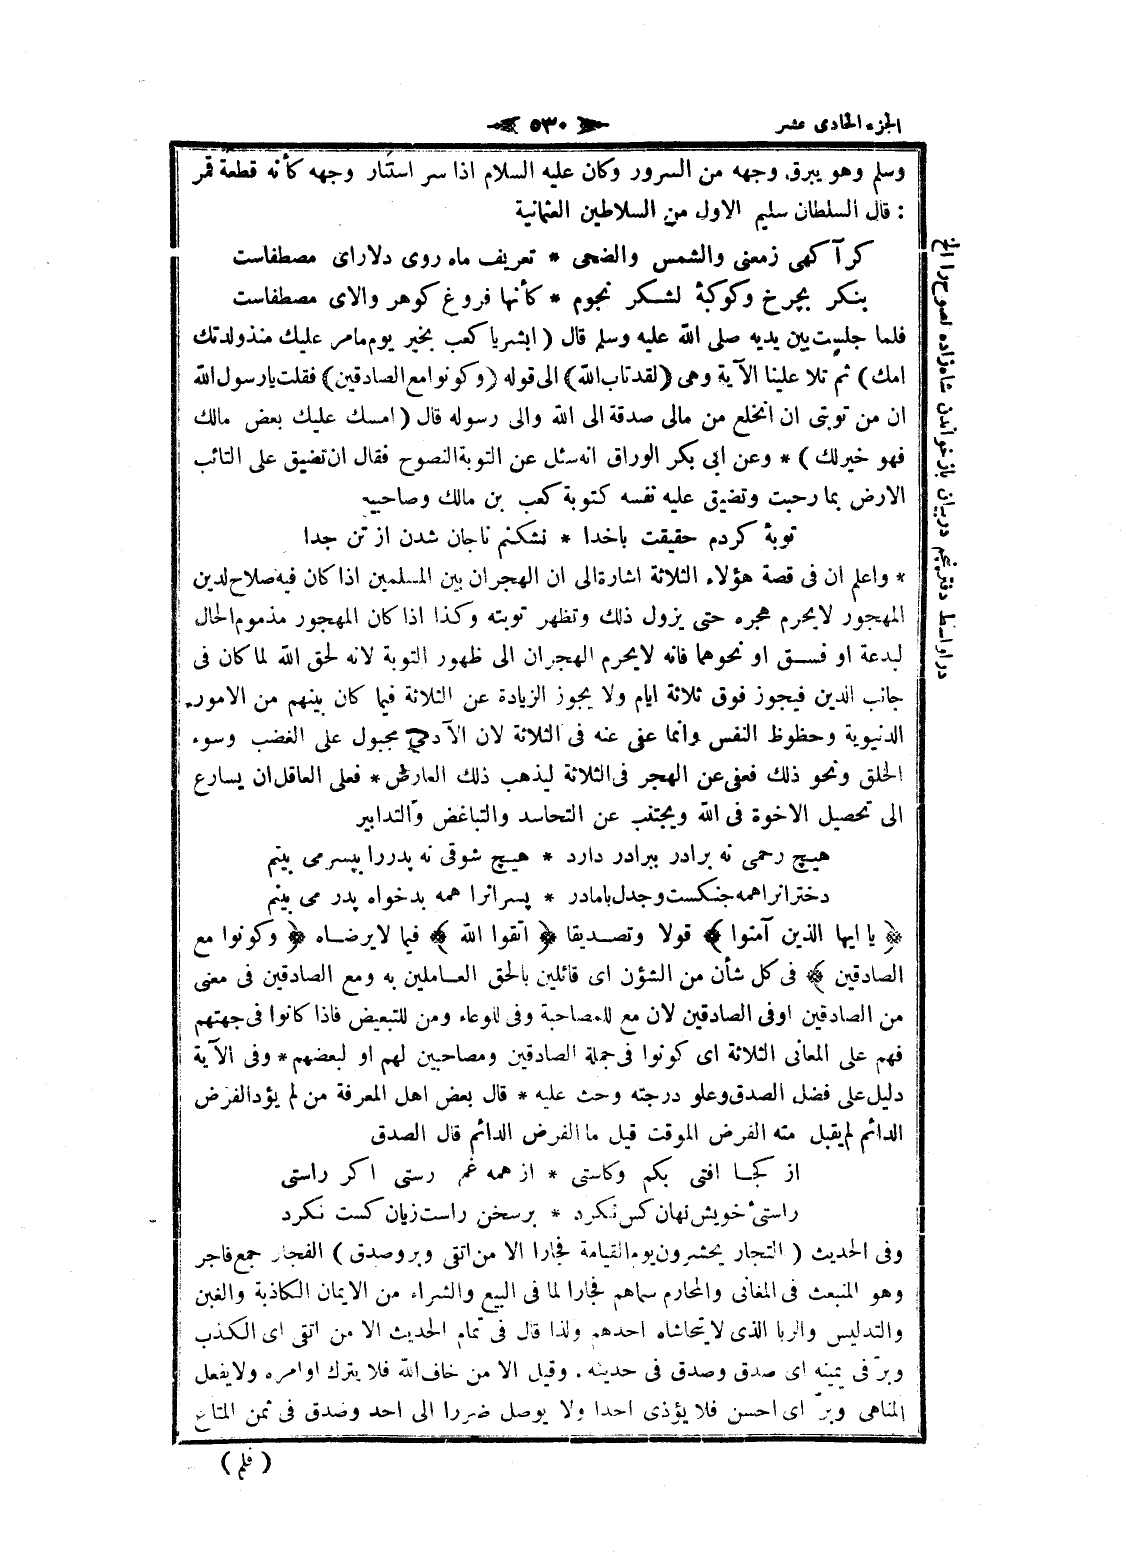 الجزء الحادى عشر
٥٣٠
وسلم وهو يبرق وجهه من السرور وكان عليه السلام اذا سر استنار وجهه كأنه قطعة قمر
: قال السلطان سليم الاول من السلاطين العثمانية
كر آكهى زمعنى والشمس والضحى * تعريف ماه روى دلاراى مصطفاست
بنكر بچرخ وكوكبۀ لشكر نجوم * كأنها فروغ كوهر والاى مصطفاست
فلما جلست بين يديه صلى الله عليه وسلم قال ( ابشر يا كعب بخير يوم مامر عليك منذ ولدتك
امك ) ثم تلا علينا الآية وهى (لقد تاب الله) الى قوله (وكونوا مع الصادقين) فقلت يارسول الله
ان من توبتى ان انخلع من مالى صدقة الى الله والى رسوله قال ( امسك عليك بعض مالك
فهو خير لك ) * وعن ابى بكر الوراق انه سئل عن التوبة النصوح فقال ان تضيق على التائب
الارض بما رحبت وتضيق عليه نفسه كتوبة كعب بن مالك وصاحبيه
توبۀ كردم حقيقت باخدا * نشكنم تاجان شدن از تن جدا
* واعلم ان فى قصة هؤلاء الثلاثة اشارة الى ان الهجران بين المسلمين اذا كان فيه صلاح لدين
المهجور لايحرم هجره حتى يزول ذلك وتظهر توبته وكذا اذا كان المهجور مذموم الحال
لبدعة او فسق او نحوهما فانه لايحرم الهجران الى ظهور التوبة لانه لحق الله لما كان فى
جانب الدين فيجوز فوق ثلاثة ايام ولا يجوز الزيادة عن الثلاثة فيما كان بينهم من الامور
الدنيوية وحظوظ النفس وانما عفى عنه فى الثلاثة لان الآدمى مجبول على الغضب وسوء
الخلق ونحو ذلك فعفى عن الهجر فى الثلاثة ليذهب ذلك العارض * فعلى العاقل ان يسارع
الى تحصيل الاخوة فى الله ويجتنب عن التحاسد والتباغض والتدابير
هيچ رحمى نه برادر ببرادر دارد * هيچ شوقى نه پدررا بپسر مى بينم
دخترانرا همه جنكست وجدل بامادر * پسرانرا همه بدخواه پدر مى بينم
﴿ يا ايها الذين آمنوا ﴾ قولا وتصديقا ﴿ اتقوا الله ﴾ فيما لايرضاه ﴿ وكونوا مع
الصادقين ﴾ فى كل شأن من الشؤن اى قائلين بالحق العاملين به ومع الصادقين فى معنى
من الصادقين اوفى الصادقين لان مع للمصاحبة وفى للوعاء ومن للتبعيض فاذا كانوا فى جهتهم
فهم على المعانى الثلاثة اى كونوا فى جملة الصادقين ومصاحبين لهم او لبعضهم * وفى الآية
دليل على فضل الصدق وعلو درجته وحث عليه * قال بعض اهل المعرفة من لم يؤد الفرض
الدائم لم يقبل منه الفرض الموقت قيل ما الفرض الدائم قال الصدق
از كجا افتى بكم وكاستى * از همه غم رستى اكر راستى
راستئ خويش نهان كس نكرد * برسخن راست زيان كست نكرد
وفى الحديث ( التجار يحشرون يوم القيامة فجارا الا من اتقى وبر وصدق ) الفجار جمع فاجر
وهو المنبعث فى المغانى والمحارم سماهم فجارا لما فى البيع والشراء من الايمان الكاذبة والغبن
والتدليس والربا الذى لايتحاشاه احدهم ولذا قال فى تمام الحديث الا من اتقى اى الكذب
وبرّ فى يمينه اى صدق وصدق فى حديثه . وقيل الا من خاف الله فلا يترك اوامره ولا يفعل
المناهى وبرّ اى احسن فلا يؤذى احدا ولا يوصل ضررا الى احد وصدق فى ثمن المتاع
( فلم )
در اواسط دفتر پنجم در بيان باز خواندن شاهزاده نصوح را الخ